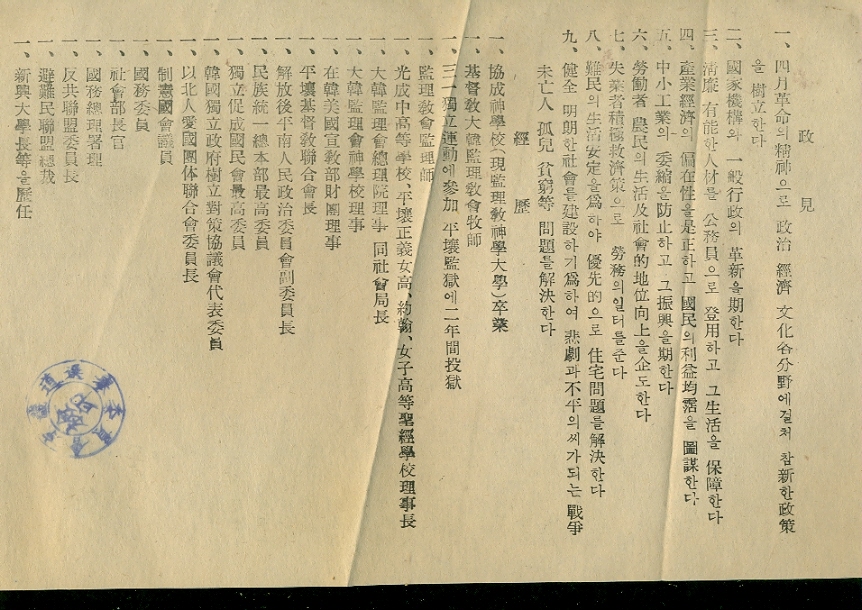 政見
一、四月革命의精神으로 政治 經濟 文化各分野에걸쳐 참新한政策
을 樹立한다
二、國家機構와 一般行政의 革新을期한다
三、淸廉 有能한人材를 公務員으로 登用하고 그生活을 保障한다
四、產業經濟의 偏在性을是正하고 國民의利益均霑을 圖謀한다
五、中小工業의 委縮을防止하고 그振興을期한다
六、勞働者 農民의生活及社會的地位向上을企도한다
七、失業者積極救濟策으로 勞務의일터를준다
八、難民의生活安定을爲하야 優先的으로 住宅問題를解決한다
九、健全 明朗한社會를建設하기爲하여 悲劇과不平의씨가되는 戰爭
未亡人 孤兒 貧窮等 問題를解決한다
經歷
一、協成神學校(現監理敎神學大學)卒業
一、基督敎大韓監理敎會牧師
一、三一獨立運動에參加 平壤監獄에二年間投獄
一、監理敎會監理師
一、光成中高等學校、平壤正義女高、約翰、女子高等聖經學校理事長
一、大韓監理會總理院理事 同社會局長
一、大韓監理會神學校理事
一、在韓美國宣敎部財團理事
一、平壤基督敎聯合會長
一、解放後平南人民政治委員會副委員長
一、民族統一總本部最高委員
一、獨立促成國民會最高委員
一、韓國獨立政府樹立對策協議會代表委員
一、以北人愛國團体聯合會委員長
一、制憲國會議員
一、國務委員
一、社會部長官
一、國務總理署理
一、反共聯盟委員長
一、避難民聯盟總裁
一、新興大學長等을歷任